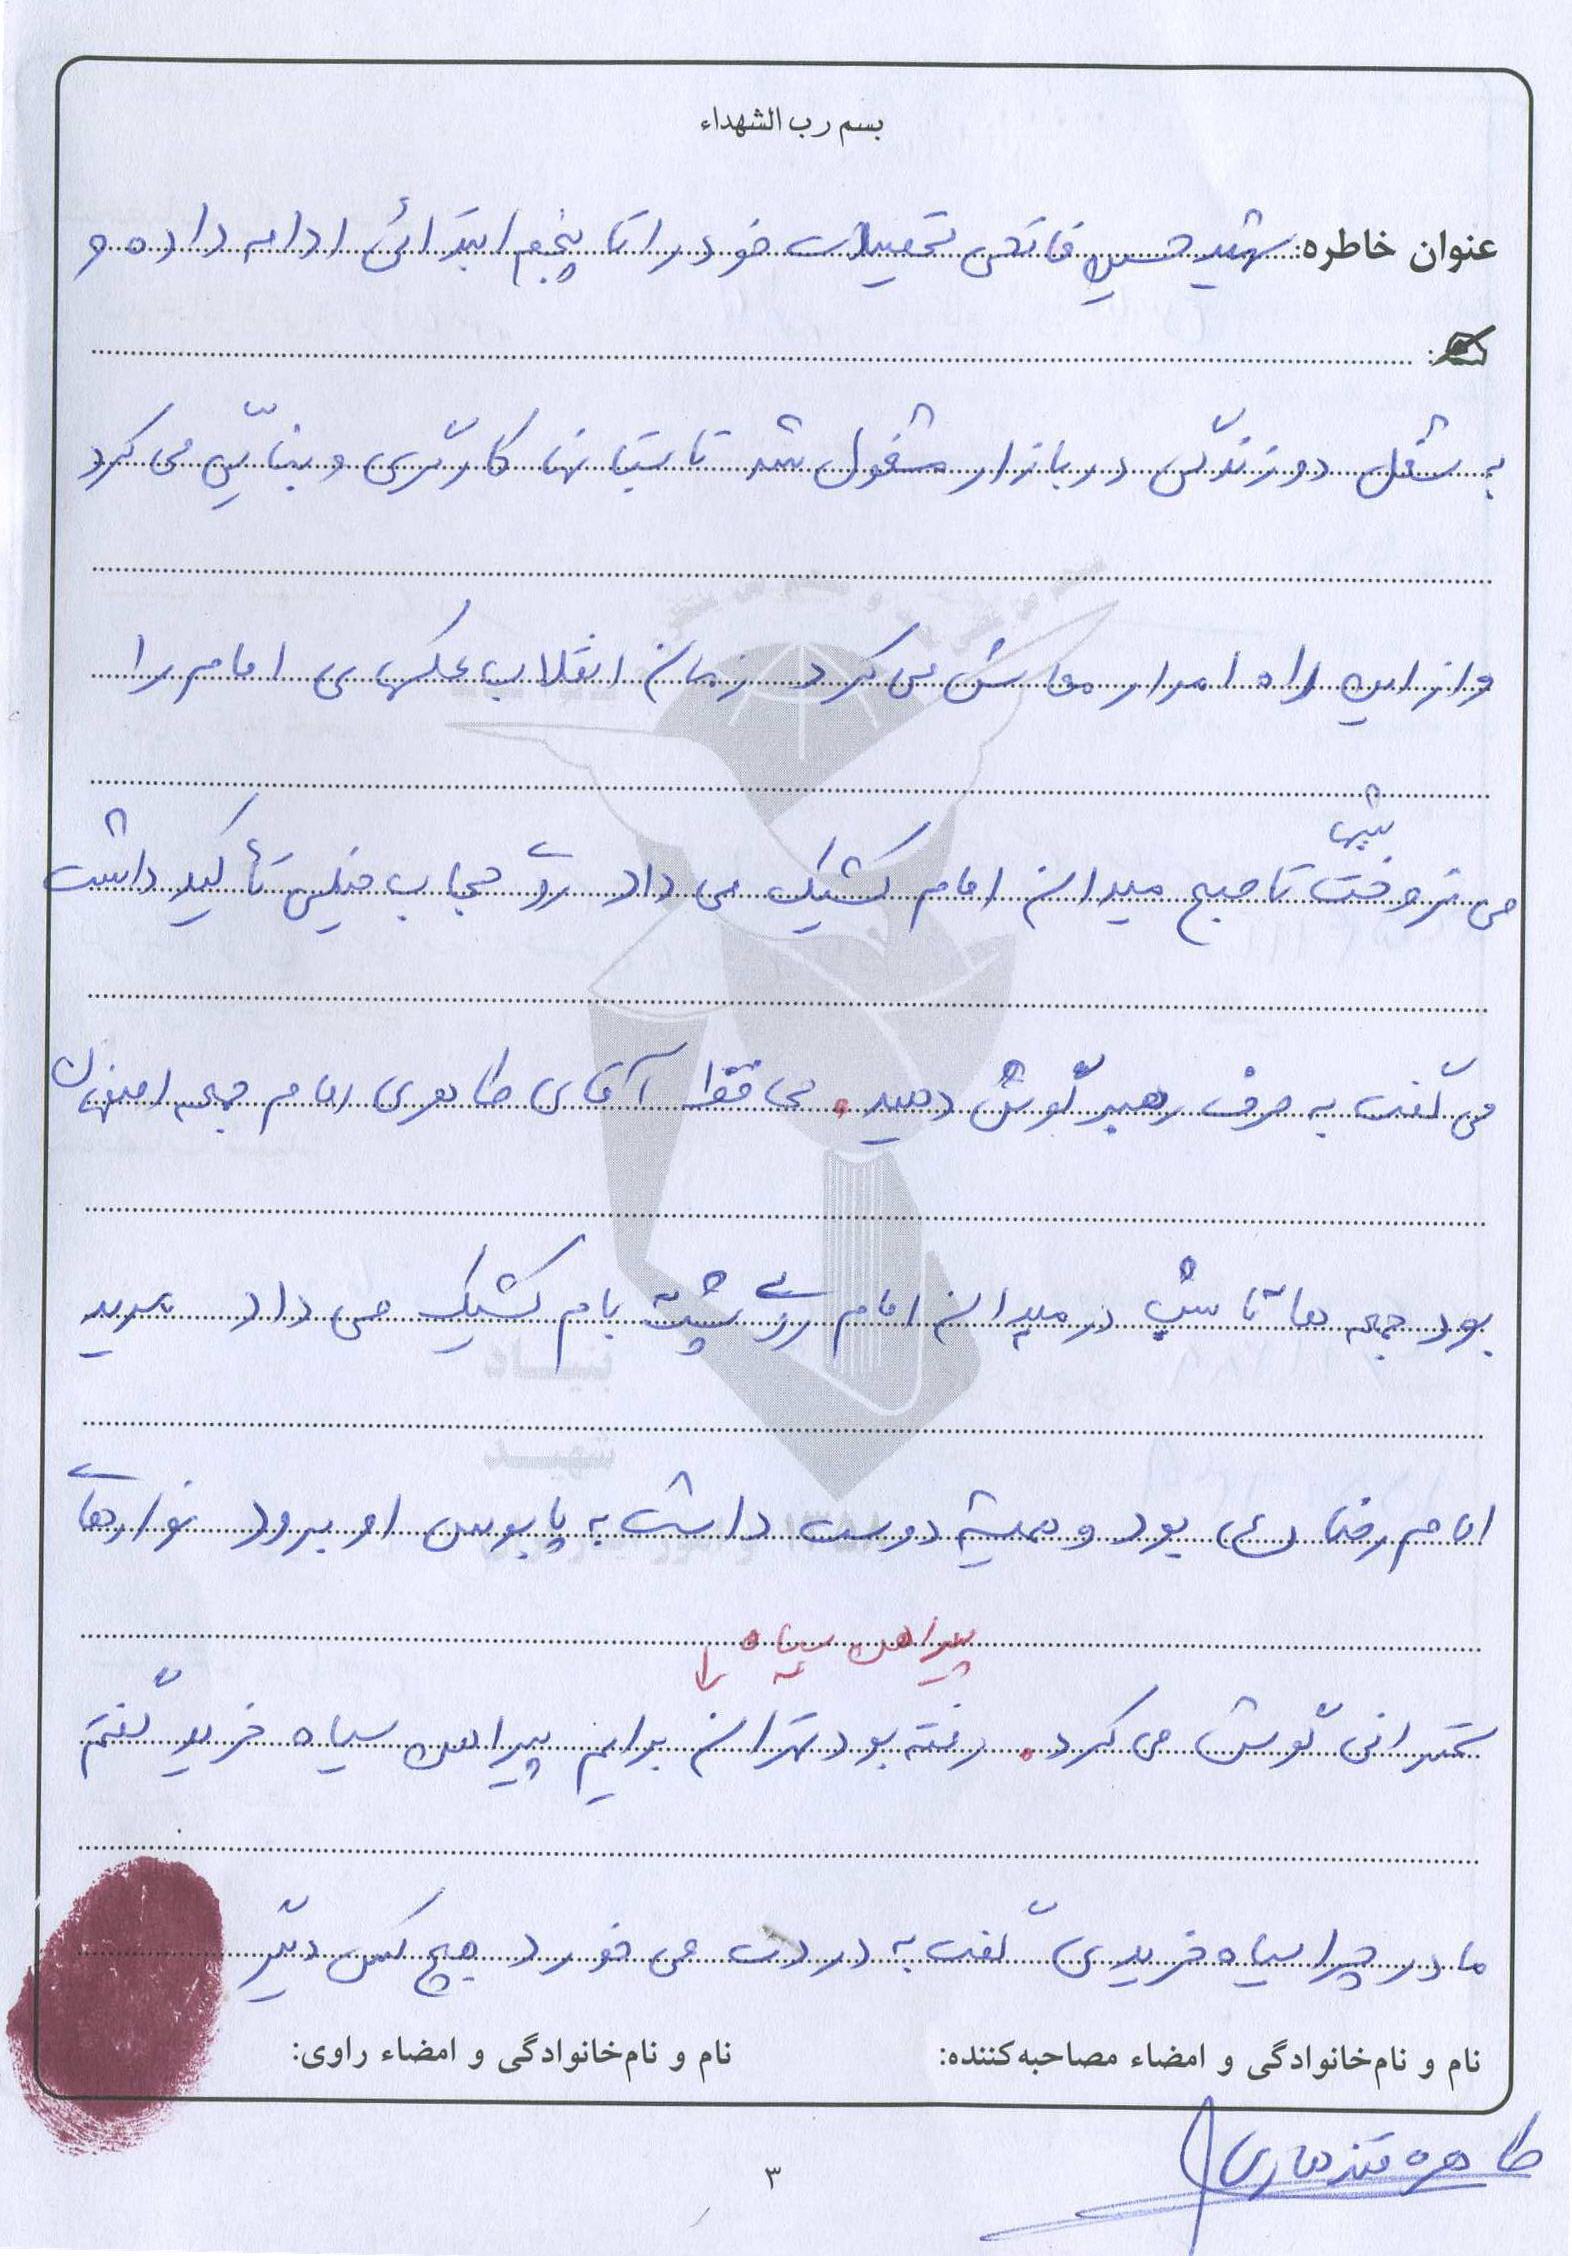 بسم رب الشهداء
عنوان خاطره: شهید حسین فاتحی تحصیلات خود را تا پنجم ابتدائی ادامه داده و
به شغل دوزندگی در بازار مشغول شد تابستانها کارگری و بنائی می کرد
و از این راه امرار معاش می کرد زمان انقلاب عکسهای امام را
شبها
می فروخت تا صبح میدان امام کشیک می داد روی حجاب خیلی تأکید داشت
می گفت به حرف رهبر گوش دهید. محافظ آقای طاهری امام جمعه اصفهان
بود جمعه ها تا شب در میدان امام روی پشت بام کشیک می داد مرید
امام رضا (ع) بود و همیشه دوست داشت به پابوس او برود نوارهای
پیراهن سیاه
سخنرانی گوش می کرد. رفته بود تهران برایم پیراهن سیاه خرید گفتم
مادر چرا سیاه خریدی گفت به دردت می خورد هیچ کس دیگر
نام و نام‌خانوادگی و امضاء مصاحبه‌کننده:
نام و نام‌خانوادگی و امضاء راوی:
طاهره قندهاری
۳
بنیاد
شهید